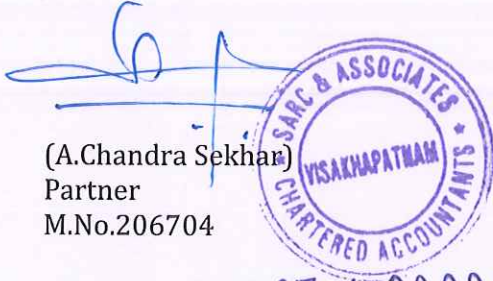 (A.Chandra Sekhar)
Partner
M.No.206704
SARC & ASSOCIATES
VISAKHAPATNAM
* CHARTERED ACCOUNTANTS *